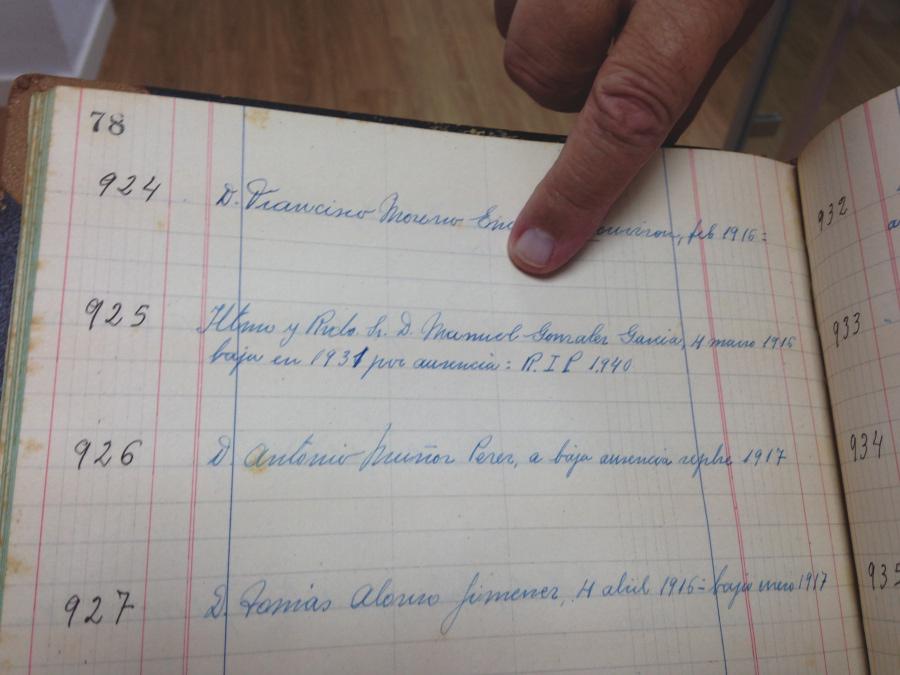 78
924 D. Francisco Moreno feb 1916=
925 Iltmo y Rvdo. Sr. D. Manuel Gonzalez Garcia, 4 marzo 1916
baja en 1931 por ausencia: R.I.P 1.940
926 D. Antonio Muñoz Perez, a baja ausencia sepbre 1917
927 D. Tomás Alonso Jimenez, 4 abril 1916= baja enero 1917
932
933
934
935